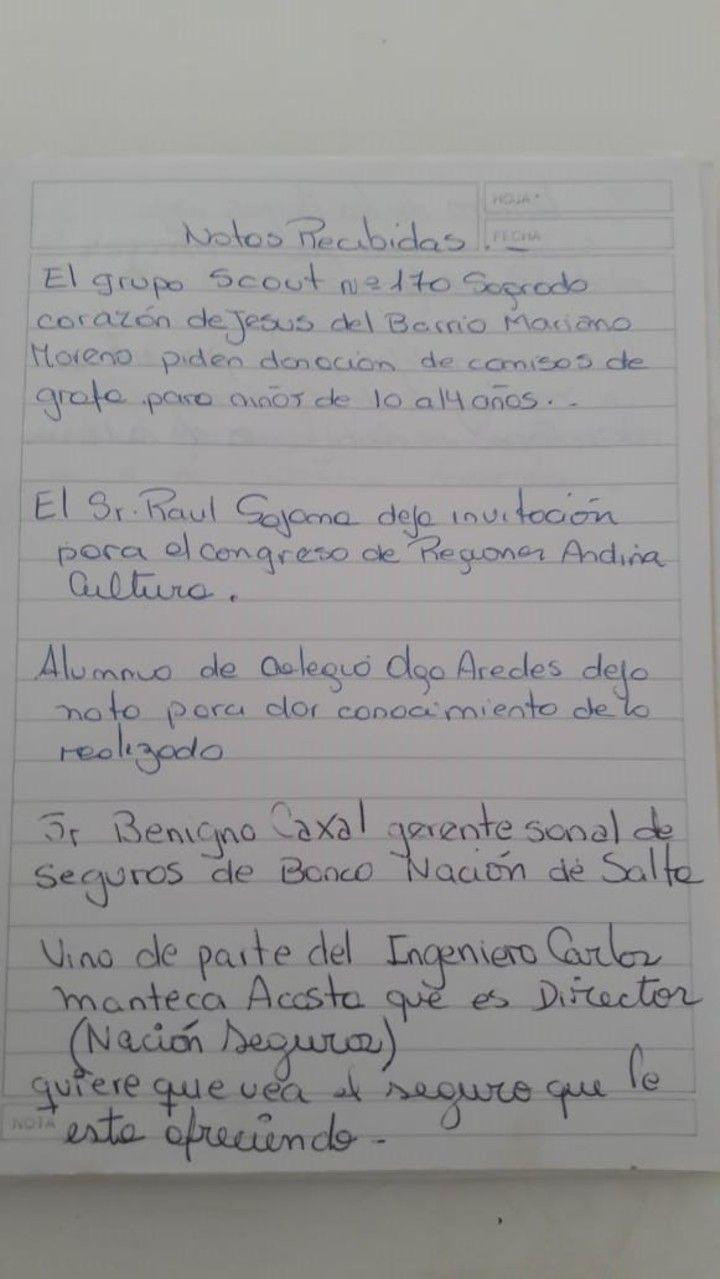 HOJA Nº
Notas Recibidas.
FECHA
El grupo Scout Nº 170 Sagrado
corazón de Jesus del Barrio Mariano
Moreno piden donación de camisas de
grafa para niños de 10 a 14 años..
El Sr. Raul Sajama dejo invitación
para el congreso de Regiones Andina
Cultura.
Alumnos de colegio Dgo Aredes dejo
nota para dar conocimiento de lo
realizado
Sr Benigno Caxal gerente sonal de
seguros de Banco Nación de Salta
Vino de parte del Ingeniero Carlos
manteca Acosta que es Director
(Nación Seguros)
quiere que vea el seguro que le
NOTA esta ofreciendo -